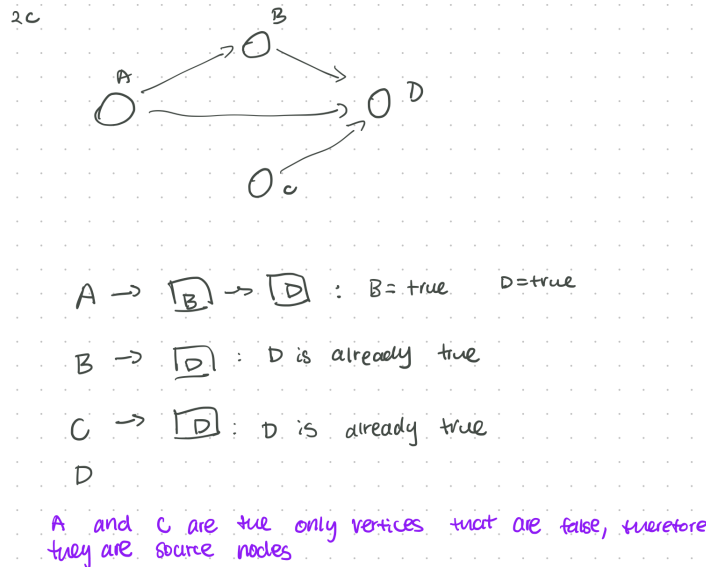 2c
B
A
D
C
A → B → D : B = true D=true
B → D : D is already true
C → D : D is already true
D
A and C are the only vertices that are false, therefore
they are source nodes